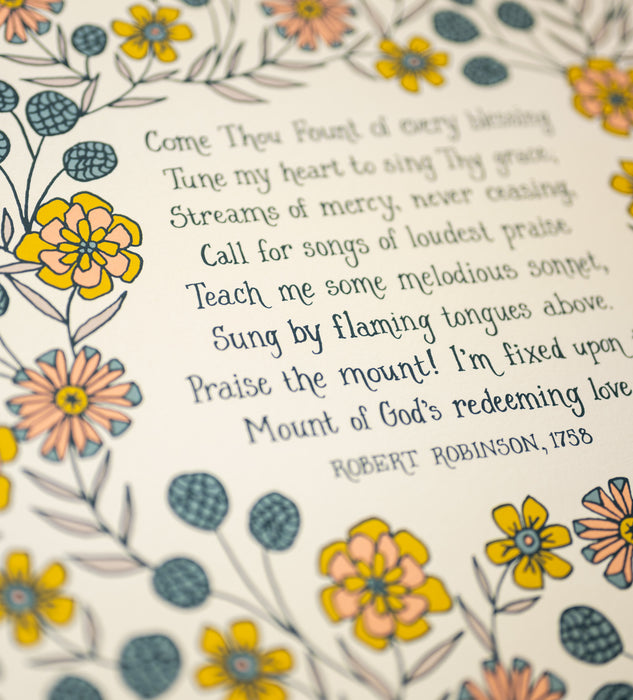 Come Thou Fount of every blessing
Tune my heart to sing Thy grace,
Streams of mercy, never ceasing,
Call for songs of loudest praise
Teach me some melodious sonnet,
Sung by flaming tongues above.
Praise the mount! I'm fixed upon
Mount of God's redeeming love
ROBERT ROBINSON, 1758